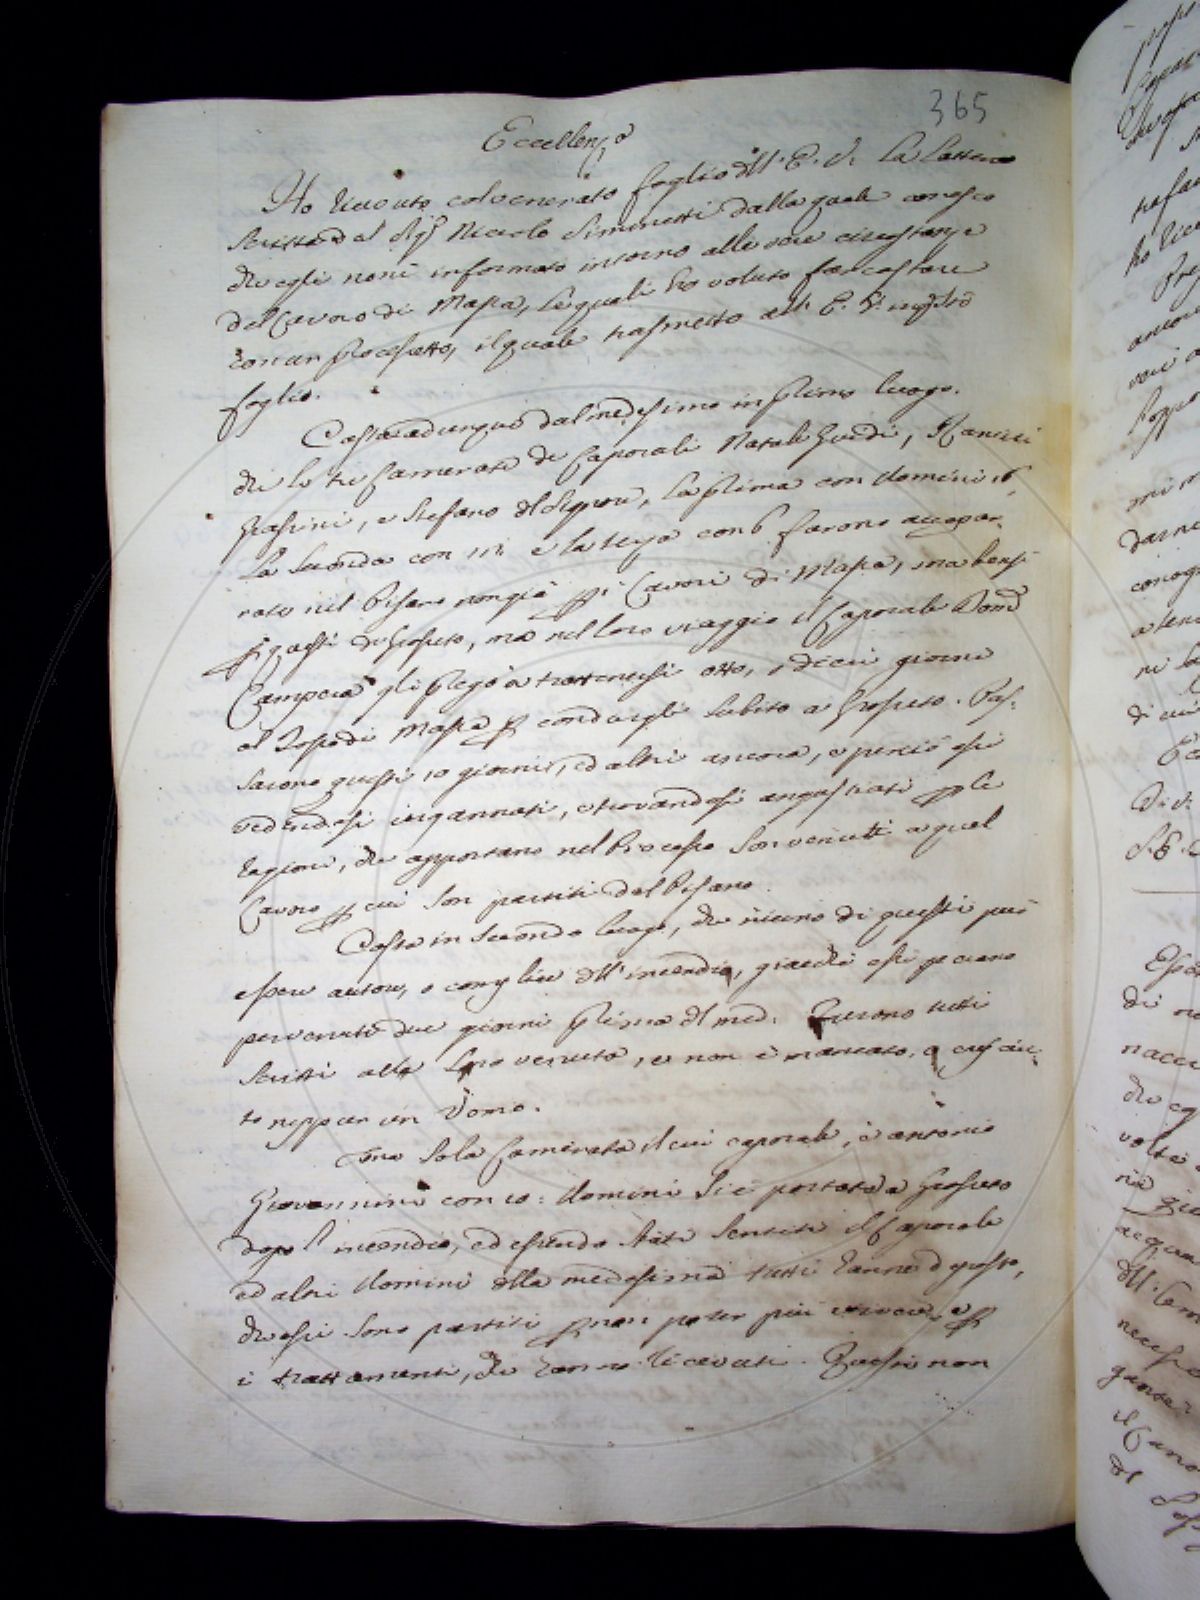 365
Eccellenza
Ho ricevuto col venerato foglio dll' E. V. la lettera
scritta dal Sigr Niccolo Siminetti dalla quale conosco
che egli non è informato intorno alle vere circostanze
del Lavoro di Massa, le quali ho voluto far costare
con un Processetto, il quale trasmetto all' E. V. in
foglio.
Costa adunque dal medesimo in primo luogo,
che le tre Camerate de Caporali Natale Guidi,
Grassini, e Stefano del Signore, la prima con Uomini 16,
la seconda con 11, e la terza con 6 furono accapar-
rate nel Pisano non già p i Lavori di Massa, ma bensì
p quelli di Grosseto, ma nel loro viaggio il Caporale Domco
Campera gli pregò a trattenersi otto, o dieci giorni
al Fosso di Massa p condurgli subito a Grosseto. Pas-
sarono questi 10 giorni, ed altri ancora, e perciò essi
vedendosi ingannati, e trovandosi angustiati p le
ragioni, che apportano nel Processo son venuti a quel
Lavoro p cui son partiti dal Pisano.
Costa in secondo luogo, che niuno di questi può
essere autore, o complice dll' incendio, giacchè essi
pervenuti due giorni prima del med. Furono tutti
scritti alla loro venuta, e non è mancato, o cresciu-
to neppur un Uomo.
Una sola Camerata il cui caporale, è Antonio
Giovannini con 10: Uomini si è portata a Grosseto
dopo l' incendio, ed essendo stati sentiti il Caporale
ed altri Uomini dlla medesima tutti hanno deposto,
che essi sono partiti p non poter più vivere, e p
i trattamenti, che hanno ricevuti. Questi non